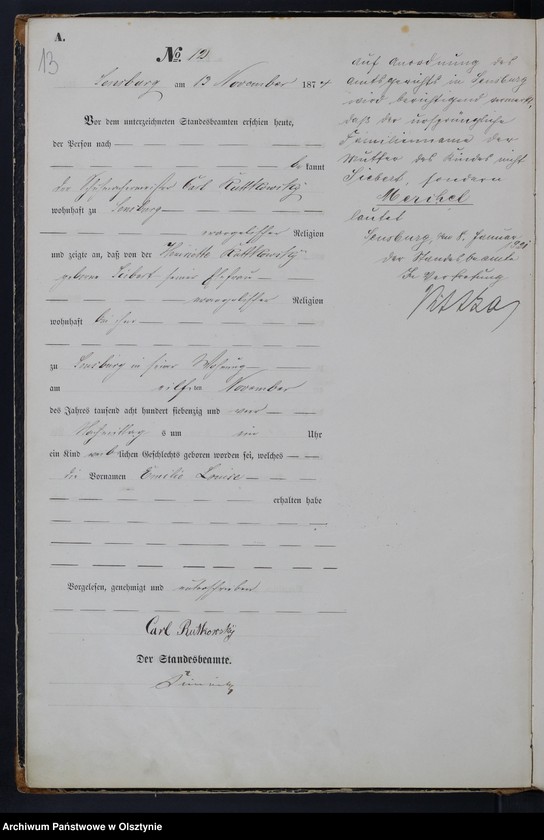 A.
13
No. 12
Sensburg am 13 November 1874
Vor dem unterzeichneten Standesbeamten erschien heute,
der Person nach
bekannt
der Carl Ruttkowsky
wohnhaft zu Sensburg
evangelischer Religion
und zeigte an, daß von der Henriette Ruttkowsky
geborne Siebert seiner Ehefrau
evangelischer Religion
wohnhaft bei ihm
zu Sensburg in seiner Wohnung
am eilften November
des Jahres tausend acht hundert siebenzig und vier
Nachmittags um ein Uhr
ein Kind weiblichen Geschlechts geboren worden sei, welches
die Vornamen Emilie Louise
erhalten habe
Vorgelesen, genehmigt und unterschrieben
Carl Rutkowsky
Der Standesbeamte.
Auf Anordnung des
Amtsgerichts in Sensburg
wird berichtigend vermerkt,
daß der ursprüngliche
Familienname der
Mutter des Kindes nicht
Siebert, sondern
lautet
Sensburg, am 8. Januar
Der Standesbeamte
In Vertretung
Archiwum Państwowe w Olsztynie